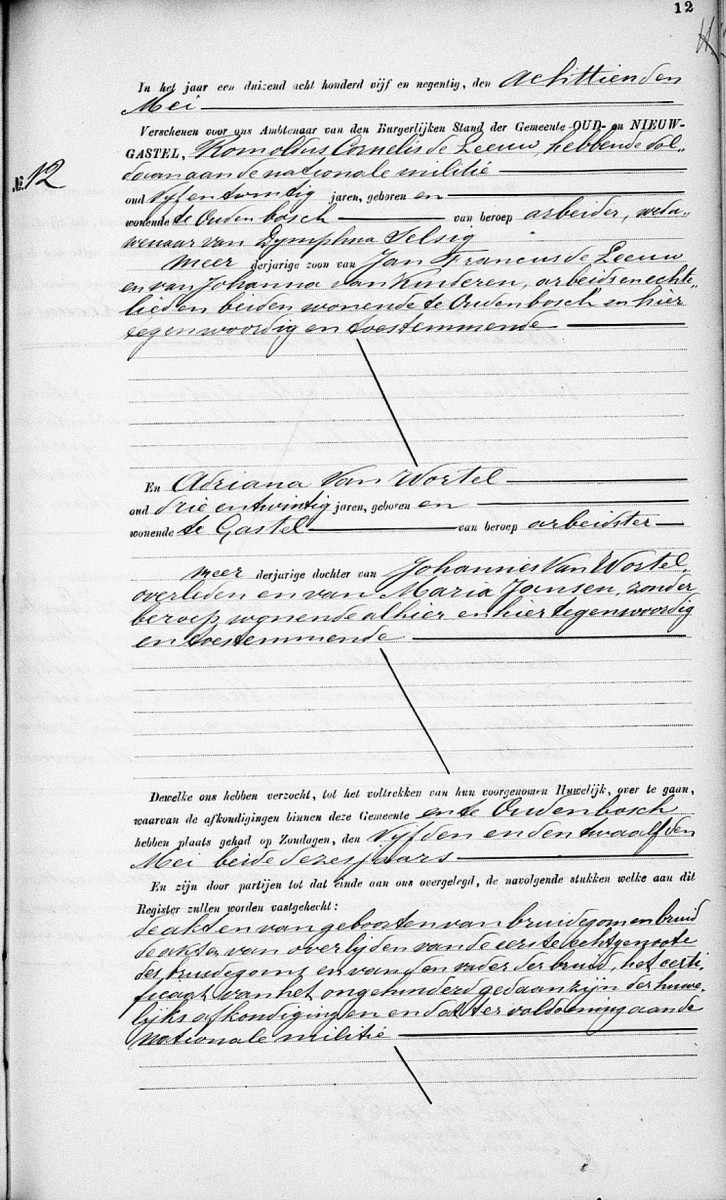 12
In het jaar een duizend acht honderd vijf en negentig, den achttienden
Mei
Verschenen voor ons Ambtenaar van den Burgerlijken Stand der Gemeente OUD- en NIEUW-
GASTEL, Romoldus Cornelis de Leeuw, hebbende vol-
daan aan de nationale militie
No. 12
oud vijf en twintig jaren, geboren en
wonende te Oudenbosch van beroep arbeider, wedu-
wenaar van Dymphna Selsig
meer derjarige zoon van Jan Francus de Leeuw
en van Johanna van Kinderen, arbeiders echte-
lieden beiden wonende te Oudenbosch en hier
tegenwoordig en toestemmende
En Adriana Van Wortel
oud drie en twintig jaren, geboren en
wonende te Gastel van beroep arbeidster
meer derjarige dochter van Johannes Van Wortel,
overleden en van Maria Jansen, zonder
beroep, wonende alhier en hier tegenwoordig
en toestemmende
Dewelke ons hebben verzocht, tot het voltrekken van hun voorgenomen Huwelijk, over te gaan,
waarvan de afkondigingen binnen deze Gemeente en te Oudenbosch
hebben plaats gehad op Zondagen, den vijfden en den twaalfden
Mei beide dezes jaars
En zijn door partijen tot dat einde aan ons overgelegd, de navolgende stukken welke aan dit
Register zullen worden vastgehecht:
de akten van geboorten van bruidegom en bruid
de akten van overlijden van de eerste echtgenoote
des bruidegoms en van den vader der bruid, het certi-
ficaat van het ongehinderd gedaan zijn der huwe-
lijks afkondigingen en dat ter voldoening aan de
nationale militie